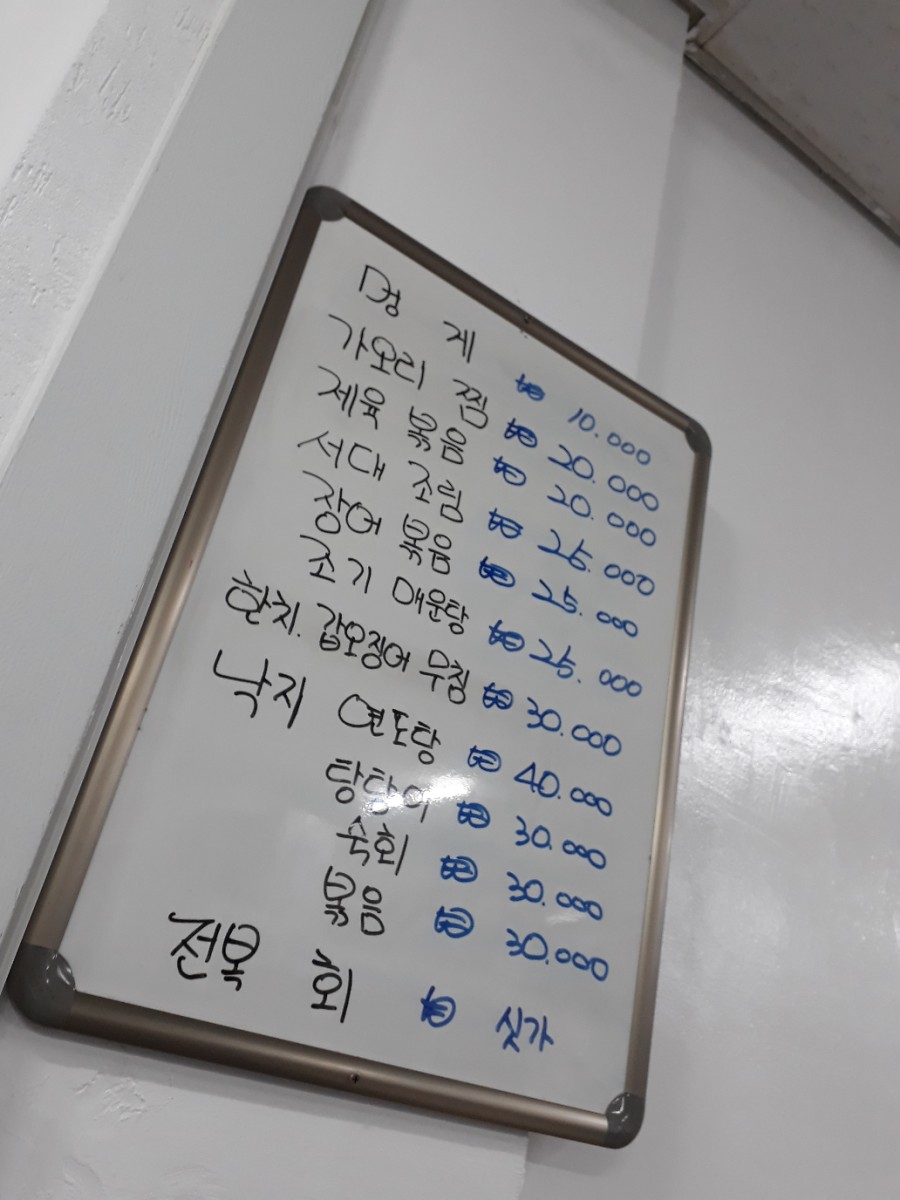 멍 게 ₩ 10.000
가오리 찜 ₩ 20.000
제육 볶음 ₩ 20.000
서대 조림 ₩ 25.000
장어 볶음 ₩ 25.000
조기 매운탕 ₩ 25.000
한치. 갑오징어 무침 ₩ 30.000
낙지 연포탕 ₩ 40.000
탕탕이 ₩ 30.000
숙회 ₩ 30.000
볶음 ₩ 30.000
전복 회 ₩ 싯가